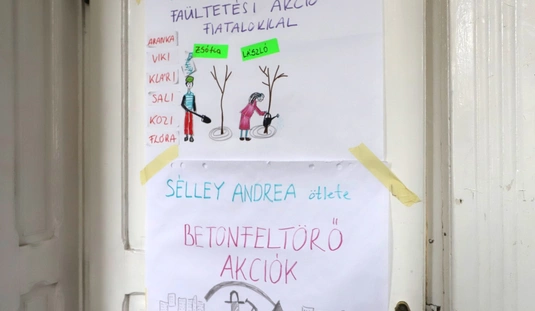 FAÜLTETÉSI AKCIÓ
FIATALOKKAL
ARANKA
VIKI
KLÁRI
SALI
KOZI
FLÓRA
ZSÓFIA
LÁSZLÓ
SÉLLEY ANDREA ötlete
BETONFELTÖRŐ
AKCIÓK